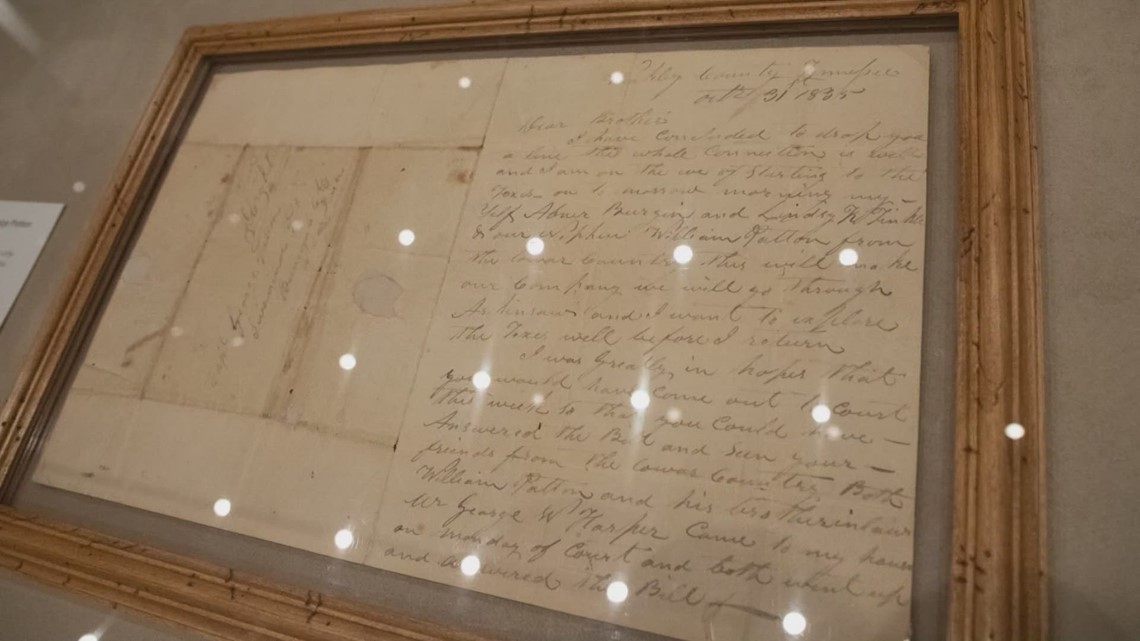 County Tennessee
Octr 31 1835
Dear Brother
I have concluded to drop you
a line the whole Connection is well
and I am on the eve of Starting to the
Texes on to morrow morning my-
Self Abner Burgin and Lindsy K Tinkle
& our Nephew William Patton from
the lowar Country this will make
our Company we will go through
Arkinsaw and I want to explore
the Texes well before I return
I was Greatly in hopes that
you would have Come out to Court
this week so that you Could have
Answered the Bill and Seen your
friends from the lowar Country Both
William Patton and his brotherinlaw
Mr George W Harper Came to my house
on monday of Court and both went up
and answered the Bill